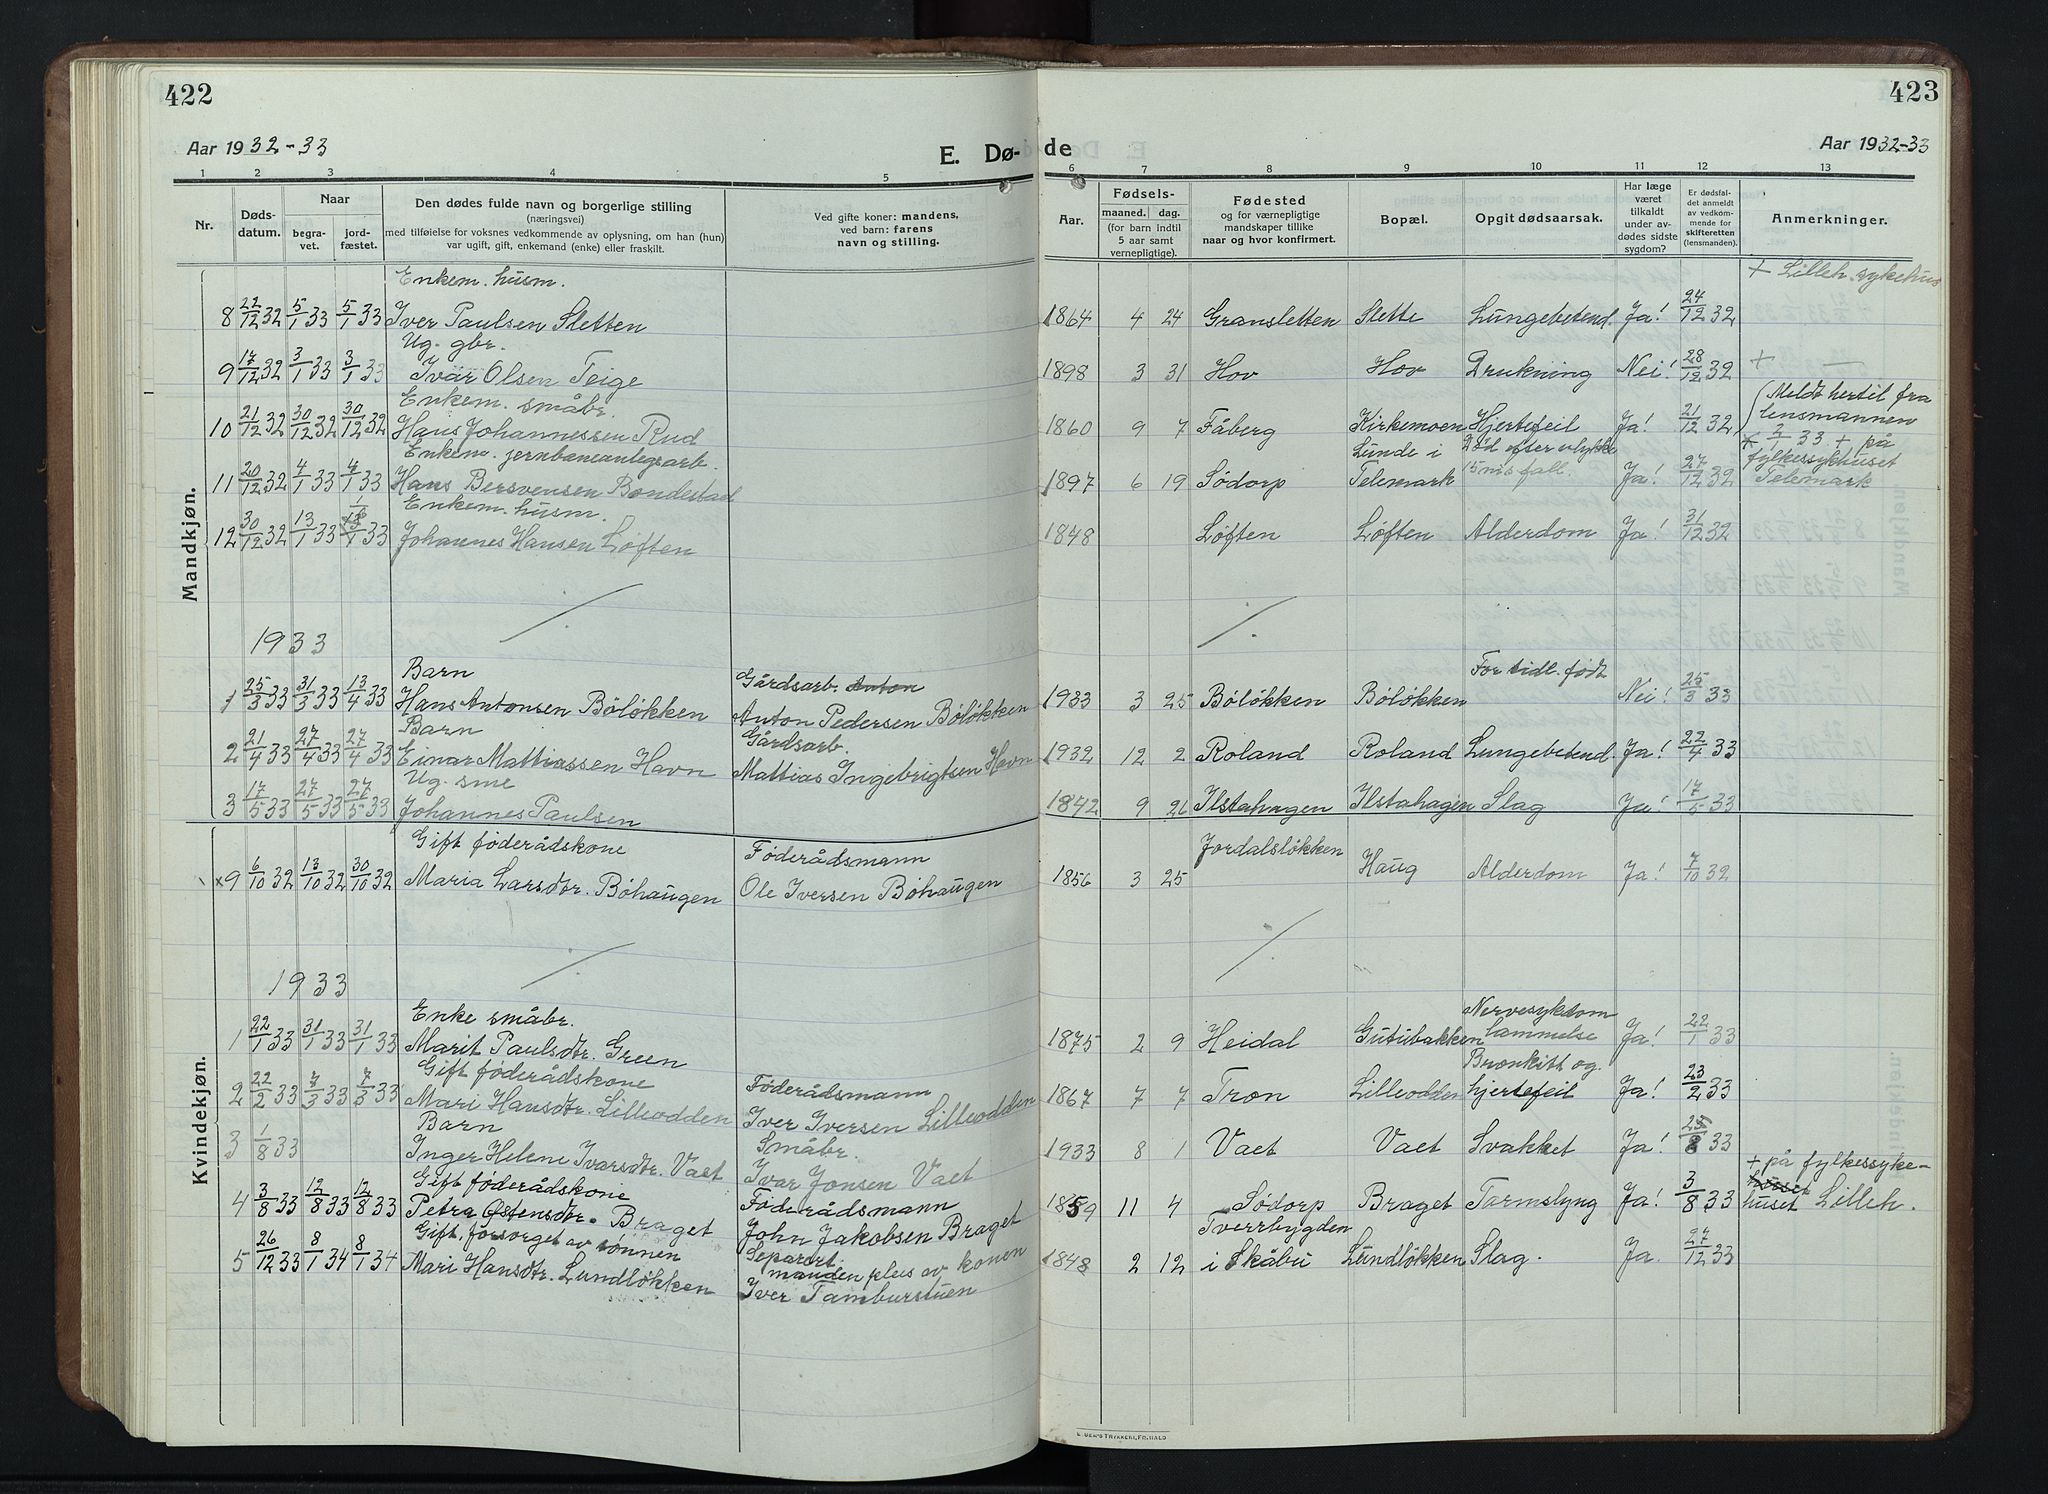 422
Aar 1932-33
E. Dø-
1 2 3 4 5
Nr.
Døds-
datum.
Naar
begra-
vet.
jord-
fæstet.
Den dødes fulde navn og borgerlige stilling
(næringsvei)
med tilføielse for voksnes vedkommende av oplysning, om han (hun)
var ugift, gift, enkemand (enke) eller fraskilt.
Ved gifte koner: mandens,
ved barn: farens
navn og stilling.
Mandkjøn.
Enkem. husm.
8 22/12 32 5/1 33 5/1 33 Iver Paulsen Sletten
Ug. gbr.
9 17/12 32 3/1 33 3/1 33 Ivar Olsen Teige
Enkem. småbr.
10 21/12 32 30/12 32 30/12 32 Hans Johannessen Rud
Enkem. jernbaneanlegsarb.
11 20/12 32 4/1 33 4/1 33 Hans Bersvensen Bondestad
Enkem. husm.
12 30/12 32 13/1 33 33 Johannes Hansen Løften
1933
Barn
Gårdsarb. Anton
1 25/3 33 31/3 33 13/4 33 Hans Antonsen Böløkken Anton Pedersen Böløkken
Barn
Gårdsarb.
2 21/4 33 27/4 33 27/4 33 Einar Mattiassen Havn Mattias Ingebrigtsen Havn
Ug. sme
3 17/5 33 27/5 33 27/5 33 Johannes Paulsen
Kvindekjøn.
Gift føderådskone
Føderådsmann
×9 6/10 32 13/10 32 30/10 32 Maria Larsdtr. Böhaugen Ole Iversen Böhaugen
1933
Enke småbr.
1 22/1 33 31/1 33 31/1 33 Marit Paulsdtr. Green
Gift føderådskone
Føderådsmann
2 22/2 33 7/3 33 7/3 33 Mari Hansdtr. Lilleodden Iver Iversen Lilleodden
Barn
Småbr.
3 1/8 33 Inger Helene Ivarsdtr. Vaet Ivar Jonsen Vaet
Gift føderådskone
Føderådsmann
4 3/8 33 12/8 33 12/8 33 Petra Østensdtr. Braget John Jakobsen Braget
Gift, forsørget av sønnen
Separert
5 26/12 33 8/1 34 8/1 34 Mari Hansdtr. Lundløkken manden pleis av konen
Iver Tamburstuen
423
de
Aar 1932-33
6 7 8 9 10 11 12 13
Aar.
Fødsels-
maaned. dag.
(for barn indtil
5 aar samt
vernepligtige).
Fødested
og for værnepligtige
mandskaper tillike
naar og hvor konfirmert.
Bopæl.
Opgit dødsaarsak.
Har læge
været
tilkaldt
under av-
dødes sidste
sygdom?
Er dødsfal-
det anmeldt
av vedkom-
mende for
skifteretten
(lensmanden).
Anmerkninger.
+ Lilleh. sykehus
1864 4 24 Gransletten Slette Lungebetend. Ja! 24/12 32
1898 3 31 Hov Hov Drukning Nei! 28/12 32 + —
(Meldt hertil fra
lensmannen
1860 9 7 Fåberg Kirkemoen Hjertefeil Ja! 21/12 32
2/1 33 + på
Lunde i Död efter ulykke
fylkessykhuset
1897 6 19 Södorp Telemark 15 m's fall. Ja! 27/12 32 Telemark
1848 Løften Løften Alderdom Ja! 31/12 32
For tidl. født
1933 3 25 Böløkken Böløkken Nei! 25/3 33
1932 12 2 Roland Roland Lungebetend. Ja! 22/4 33
1842 9 26 Ilstahagen Ilstahagen Slag Ja! 17/5 33
Jordalsløkken
1856 3 25 Haug Alderdom Ja! 7/10 32
Nervesykdom
1875 2 9 Heidal Gutubakken Lammelse Ja! 22/1 33
Bronkitt og
1867 7 7 Tron Lilleodden hjertefeil Ja! 23/2 33
1933 8 1 Vaet Vaet Svakhet Ja! 33
+ på fylkessyke-
1859 11 4 Södorp Braget Tarmslyng Ja! 3/8 33 huset Lilleh.
Tverrbygden
1848 2 12 i Skåbu Lundløkken Slag. Ja. 27/12 33